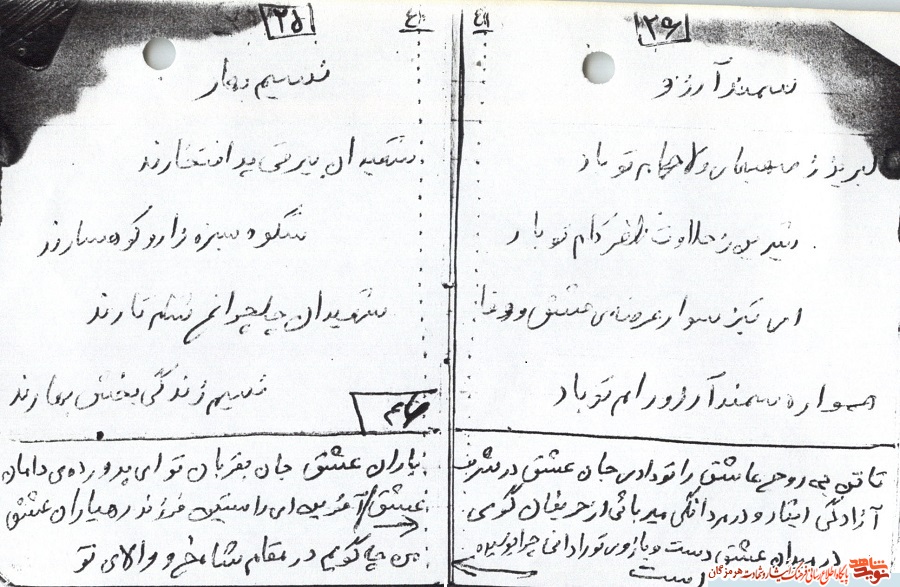 ٢٦
٤١
سمند آرزو
لبریز ز صهبای ولا جام تو باد
شیرین ز حلاوت ظفر کام تو باد
ای تیز سوار عرصه‌ی عشق و وفا
همواره سمند آرزو رام تو باد
تا تن بی روح عاشق را تو دادی جان عشق در شرف
آزادگی ایثار و در مردانگی میربائی از حریفان گوی
در میدان عشق دست و بازوی تو را دانی چرا بوسیده
است
پایگاه اطلاع رسانی فرهنگ ایثار و شهادت هرمزگان
نوید شاهد
٢٥
٤٠
نسیم بهار
شهیدان بیرقی پر افتخارند
شکوه سبزه زار و کوهسارند
شهیدان چلچراغ شام تارند
نسیم زندگی بخش بهارند
٤٦
یاران عشق جان بقربان تو ای پرورده‌ی دامان
عشق آفرین ای راستین فرزند رهیاران عشق
من چه گویم در مقام شامخ و والای تو